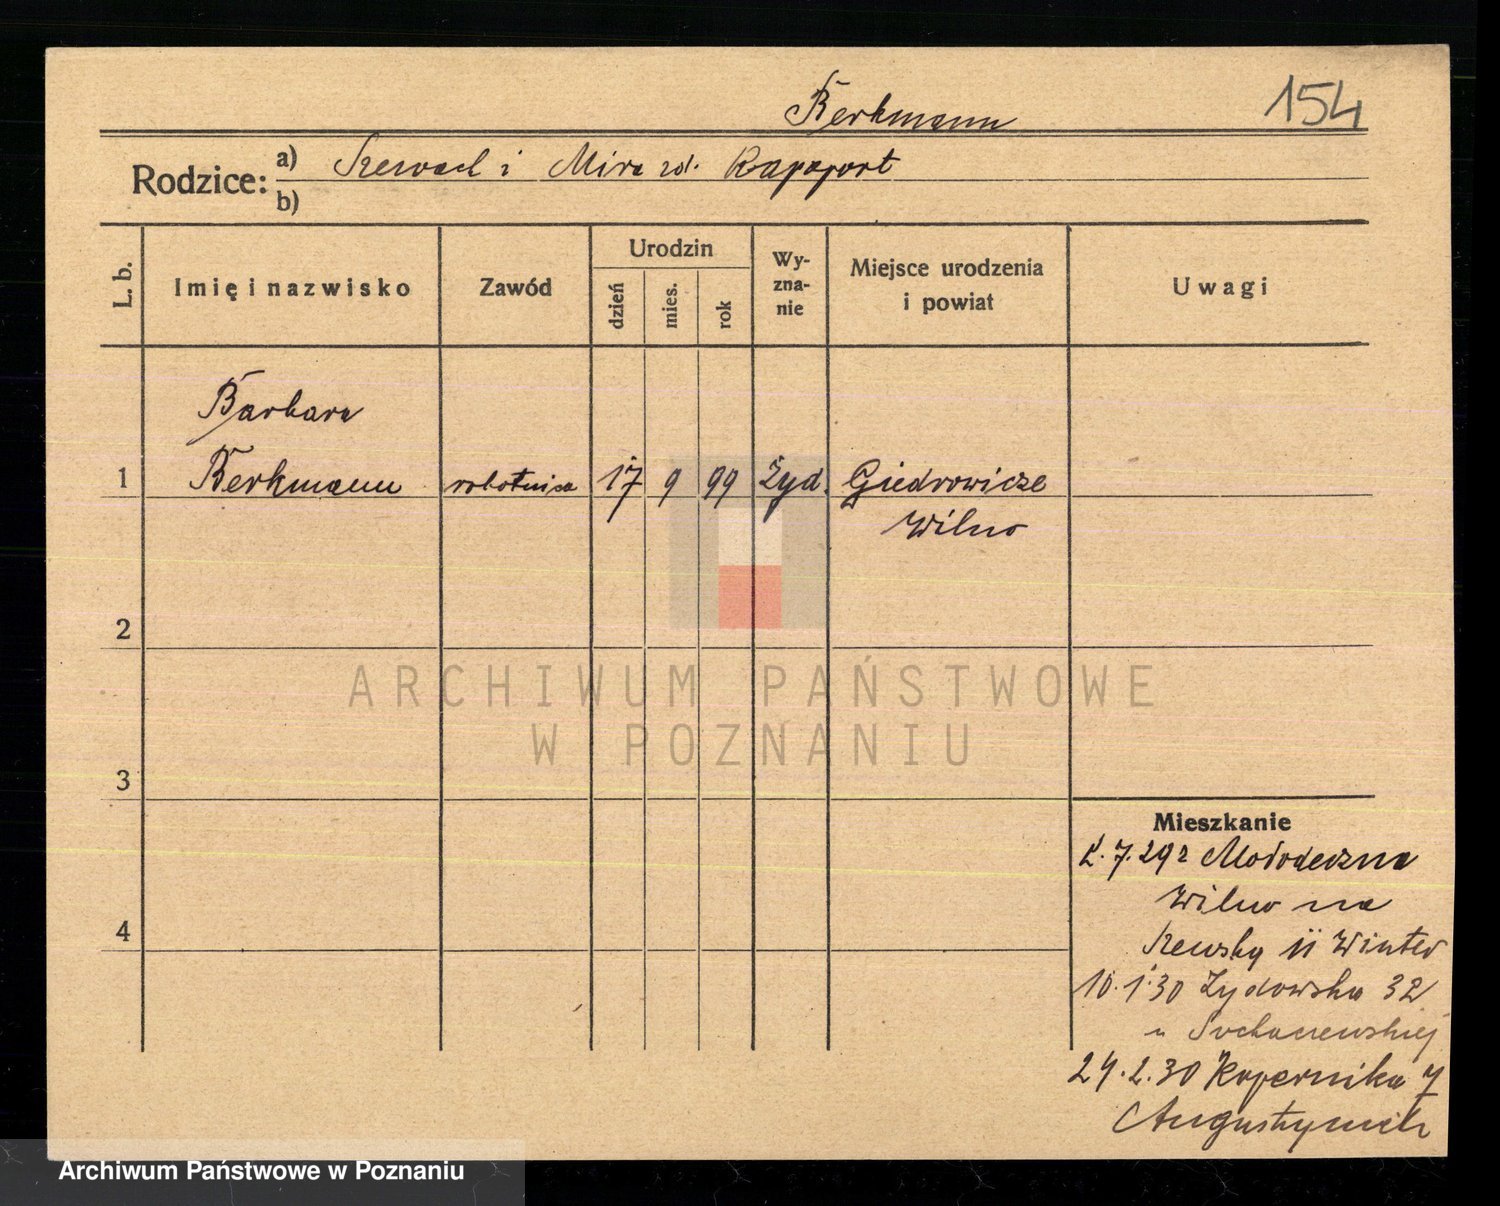 Berkmann
154
Rodzice:
a) Szewach i Mira zd. Rapaport
b)
L. b.
Imię i nazwisko
Zawód
Urodzin
dzień
mies.
rok
Wy-
zna-
nie
Miejsce urodzenia
i powiat
Uwagi
Barbara
1 Berkmann robotnica 17 9 99 Żyd. Giedrowicze
Wilno
2
3
4
Mieszkanie
2.7.29 z Mołodeczna
Wilno na
10.1.30 Żydowska 32
u Sochaczewskiej
24.2.30 Kopernika 7
ARCHIWUM PAŃSTWOWE
W POZNANIU
Archiwum Państwowe w Poznaniu